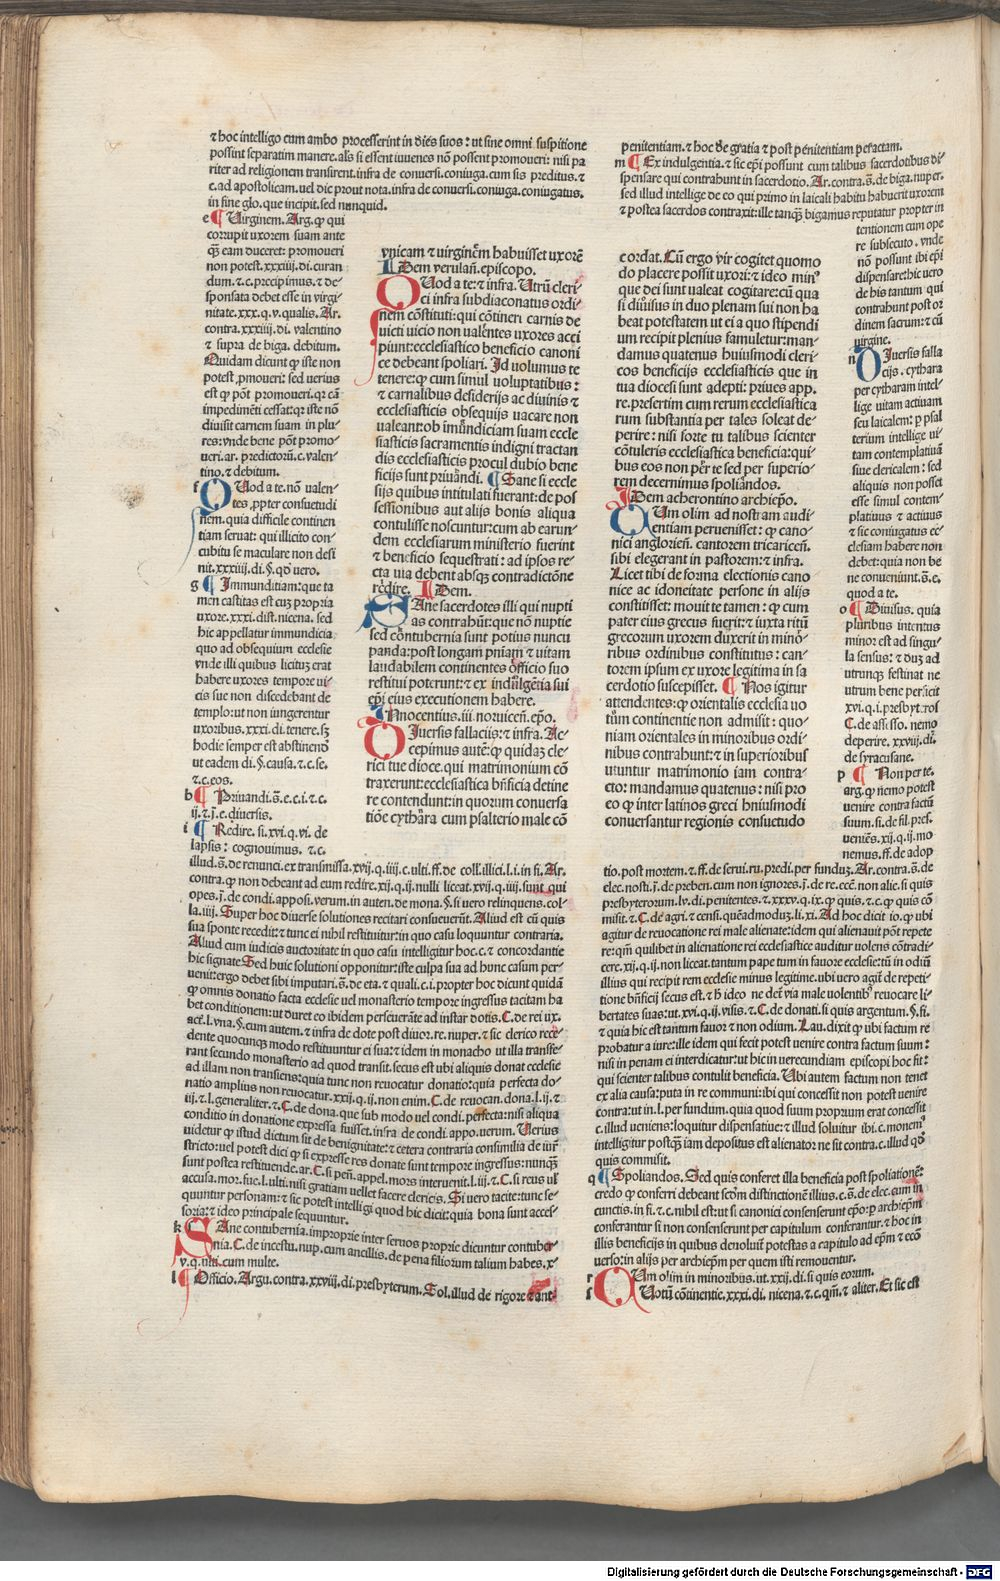 ⁊ hoc intelligo cum ambo processerint in dies suos: ut sine omni suspitione
possint separatim manere. als si essent iuuenes nō possent promoueri: nisi pa
riter ad religionem transirent. infra de conuersi. coniuga. cum sis preditus. ⁊
c. ad apostolicam. uel dic prout nota. infra de conuersi. coniuga. coniugatus.
in fine glo. que incipit. sed nunquid.
e ¶ Uirginem. Arg. ꝙ qui
corrupit uxorem suam ante
ꝙ̄ eam duceret: promoueri
non potest. xxxiiij. di. curan
dum. ⁊. c. precipimus. ⁊ de-
sponsata debet esse in virgi-
nitate. xxx. q. v. qualis. Ar.
contra. xxxiiij. di. valentino
⁊ supra de biga. debitum.
Quidam dicunt ꝙ iste non
potest ꝓmoueri: sed uerius
est ꝙ pōt promoueri. qr eā
impedimēti cessat: qr iste nō
diuisit carnem suam in plu-
res: vnde bene pōt promo-
ueri. ar. predictorū. c. valen-
tino. ⁊ debitum.
f Quod a te. nō valen-
tes ꝓpter consuetudi
nem. quia difficile continen
tiam seruat: qui illicito con-
cubitu se maculare non desi
nit. xxxiiij. di. §. qd̄ uero.
g ¶ Immunditiam: que ta
men castitas est cuȝ propria
uxore. xxxi. dist. nicena. sed
hic appellatur immundicia
quo ad obsequium ecclesie
vnde illi quibus licituȝ erat
habere uxores tempore ui-
cis sue non discedebant de
templo: ut non iungerentur
uxoribus. xxxi. di. tenere. sȝ
hodie semper est abstinenō
ut eadem di. §. causa. ⁊. c. se.
⁊. c. eos.
h ¶ Priuandi. s̄. e. c. i. ⁊. c.
ij. ⁊. j. e. diuersis.
i ¶ Redire. si. xvi. q. vi. de
lapsis: cognouimus. ⁊. c.
illud. s̄. de renunci. ex transmissa. xvij. q. iiij. c. ulti. ff. de coll. illici. l. i. in fi. Ar.
contra. ꝙ non debeant ad eum redire. xij. q. ij. nulli liceat. xvij. q. iiij. sunt qui
opes. j. de condi. apposi. verum. in auten. de mona. §. si uero relinquens. col-
la. iiij. Super hoc diuerse solutiones recitari consueuerūt. Aliud est cū quis
sua sponte recedit: ⁊ tunc ei nihil restituitur: in quo casu loquuntur contraria.
Aliud cum iudicis auctoritate in quo casu intelligitur hoc. c. ⁊ concordantie
hic signate. Sed huic solutioni opponitur: iste culpa sua ad hunc casum per-
uenit: ergo debet sibi imputari. s̄. de eta. ⁊ quali. c. i. propter hoc dicunt quidā
ꝙ omnis donatio facta ecclesie uel monasterio tempore ingressus tacitam ha
bet conditionem: ut duret eo ibidem perseuerāte ad instar dotis. C. de rei ux.
act. l. vna. §. cum autem. ⁊ infra de dote post diuor. re. nuper. ⁊ sic clerico rece-
dente quocunqȝ modo restituuntur ei sua: ⁊ idem in monacho ut illa transfe-
rant secundo monasterio ad quod transit. secus est ubi aliquis donat ecclesie
ad illam non transiens: quia tunc non reuocatur donatio: quia perfecta do-
natio amplius non reuocatur. xxij. q. ij. non enim. C. de reuocan. dona. l. ij. ⁊
iij. ⁊. l. generaliter. ⁊. C. de dona. que sub modo uel condi. perfecta: nisi aliqua
conditio in donatione expressa fuisset. infra de condi. appo. uerum. Uerius
uidetur ꝙ istud dictum sit de benignitate: ⁊ cetera contraria consimilia de iur̄
stricto: uel potest dici ꝙ si expresse res donate sunt tempore ingressus: nunqȝ̄
sunt postea restituende. ar. C. si pen̄. appel. mors interuenit. l. iij. ⁊. C. si reus ul̄
accusa. mor. fue. l. ulti. nisi gratiam uellet facere clericis. Si uero tacite: tunc se-
quuntur personam: ⁊ sic potest intelligi quod hic dicit: quia bona sunt acces-
soria: ⁊ ideo principale sequuntur.
k Sane contubernia. improprie inter seruos proprie dicuntur contuber-
nia. C. de incestu. nup. cum ancillis. de pena filiorum talium habes. x-
v. q. ulti. cum multe.
l ¶ Officio. Argu. contra. xxviij. di. presbyterum. Sol. illud de rigore ⁊ ant-
vnicam ⁊ uirginēm habuisset uxorē
Idem verulan̄. episcopo.
Quod a te: ⁊ infra. Utrū cleri-
ci infra subdiaconatus ordi-
nem cōstituti: qui cōtineri carnis de
uicti uicio non ualentes uxores acci
piunt: ecclesiastico beneficio canoni
ce debeant spoliari. Id uolumus te
tenere: ꝙ cum simul uoluptatibus:
⁊ carnalibus desiderijs ac diuinis ⁊
ecclesiasticis obsequijs uacare non
ualeant: ob im̄undiciam suam eccle
siasticis sacramentis indigni tractan
dis ecclesiasticis procul dubio bene
ficijs sunt priuādi. ¶ Sane si eccle
sijs quibus intitulati fuerant: de pos
sessionibus aut alijs bonis aliqua
contulisse noscuntur: cum ab earun-
dem ecclesiarum ministerio fuerint
⁊ beneficio sequestrati: ad ipsos re-
cta uia debent absqȝ contradictōne
redire. Idem.
Sane sacerdotes illi qui nupti
as contrahūt: que nō nuptie
sed cōntubernia sunt potius nuncu
panda: post longam pniam ⁊ uitam
laudabilem continentes officio suo
restitui poterunt: ⁊ ex indulgētia sui
epi eius executionem habere.
Innocentius. iii. noruicen̄. epō.
Diuersis fallaciis: ⁊ infra. Ac-
cepimus autē: ꝙ quidaȝ cle-
rici tue dioce. qui matrimonium cō
traxerunt: ecclesiastica bn̄ficia detine
re contendunt: in quorum conuersa
tiōe cythara cum psalterio male cō
penitentiam. ⁊ hoc de gratia ⁊ post penitentiam peractam.
m ¶ Ex indulgentia. ⁊ sic epi possunt cum talibus sacerdotibus di-
spensare qui contrahunt in sacerdotio. Ar. contra. s̄. de biga. nuper.
sed illud intellige de eo qui primo in laicali habitu habuerit uxorem
⁊ postea sacerdos contraxit: ille tanqȝ bigamus reputatur propter in
tentionem cum ope
re subsecuto. vnde
nō possunt ibi epi
dispensare: hic uero
de his tantum qui
contrahunt post or
dinem sacrum: ⁊ cū
uirgine.
n Diuersis falla
cijs. cythara
per cytharam intel-
lige uitam actiuam
seu laicalem: ꝑ psal
terium intellige ui-
tam contemplatiuā
siue clericalem: sed
aliquis non posset
esse simul contem-
platiuus ⁊ actiuus
⁊ sic coniugatus ec-
clesiam habere non
debet: quia non be
ne conueniunt. s̄. e.
quod a te.
o ¶ Diuisus. quia
pluribus intentus
minor est ad singu-
la sensus: ⁊ duȝ ad
utrunqȝ festinat ne
utrum bene perficit
xvi. q. i. presbyteros
C. de assesso. nemo
deperire. xxvij. di.
de syracusane.
p ¶ Non per te.
arg. ꝙ nemo potest
uenire contra factū
suum. si. de fil. pres.
ueniēs. xij. q. ij. mo
nemus. ff. de adop
cordat. Cū ergo vir cogitet quomo
do placere possit uxori: ⁊ ideo minꝰ
que dei sunt ualeat cogitare: cū qua
si diuisus in duo plenam sui non ha
beat potestatem ut ei a quo stipendi
um recipit plenius famuletur: man-
damus quatenus huiusmodi cleri-
cos beneficijs ecclesiasticis que in
tua diocesi sunt adepti: priues app.
re. presertim cum rerum ecclesiastica
rum substantia per tales soleat de-
perire: nisi forte tu talibus scienter
cōtuleris ecclesiastica beneficia: qui-
bus eos non per te sed per superio-
rem decernimus spoliandos.
Idem acherontino archiepō.
Cum olim ad nostram audi-
entiam peruenisset: ꝙ cano-
nici anglorien̄. cantorem tricaricen̄.
sibi elegerant in pastorem: ⁊ infra.
Licet tibi de forma electionis cano
nice ac idoneitate persone in alijs
constitisset: mouit te tamen: ꝙ cum
pater eius grecus fuerit: ⁊ iuxta ritū
grecorum uxorem duxerit in mino-
ribus ordinibus constitutus: can-
torem ipsum ex uxore legitima in sa
cerdotio suscepisset. ¶ Nos igitur
attendentes: ꝙ orientalis ecclesia uo
tum continentie non admisit: quo-
niam orientales in minoribus ordi-
nibus contrahunt: ⁊ in superioribus
utuntur matrimonio iam contra-
cto: mandamus quatenus: nisi pro
eo ꝙ inter latinos greci huiusmodi
conuersantur regionis consuetudo
tio. post mortem. ⁊. ff. de serui. ru. predi. per funduȝ. Ar. contra. s̄. de
elec. nosti. j. de preben. cum non ignores. j. de re. ecc̄. non alie. si quis
presbyterorum. lv. di. penitentes. ⁊. xxxv. q. ix. ꝙ quis. ⁊. c. ꝙ quis cō
misit. ⁊. C. de agri. ⁊ censi. quēadmoduȝ. li. xi. Ad hoc dicit io. ꝙ ubi
agitur de reuocatione rei male alienate: idem qui alienauit pōt repete
re: qm̄ quilibet in alienatione rei ecclesiastice auditur uolens cōtradi-
cere. xij. q. ij. non liceat. tantum pape tum in fauore ecclesie: tū in odiū
illius qui recipit rem ecclesie minus legitime. ubi uero agit̄ de repeti-
tione bn̄ficij secus est. ⁊ h̄ ideo ne det̄ via male uolentibꝰ reuocare li-
bertates suas: ut. xvi. q. ij. visis. ⁊. C. de donati. si quis argentum. §. fi.
⁊ quia hic est tantum fauor ⁊ non odium. Lau. dixit ꝙ ubi factum re
probatur a iure: ille idem qui fecit potest uenire contra factum suum:
nisi in penam ei interdicatur: ut hic in uerecundiam episcopi hoc fit:
qui scienter talibus contulit beneficia. Ubi autem factum non tenet
ex alia causa: puta in re communi: ibi qui concessit non potest uenire
contra: ut in. l. per fundum. quia quod suum proprium erat concessit
c. illud ueniens: loquitur dispensatiue: ⁊ illud soluitur ibi. c. monemꝰ
intelligitur postqȝ̄ iam depositus est alienator: ne sit contra. c. illud qd̄
quis commisit.
q ¶ Spoliandos. Sed quis conferet illa beneficia post spoliationē:
credo ꝙ conferri debeant scd̄m distinctionē illius. c. s̄. de elec. cum in
cunctis. in fi. ⁊. c. nihil est: ut si canonici consenserunt epō: ꝑ archiepm̄
conferantur si non consenserunt per capitulum conferantur. ⁊ hoc in
illis beneficijs in quibus deuoluit̄ potestas a capitulo ad epm̄ ⁊ econ
uerso: in alijs per archiepm̄ per quem isti remouentur.
r Cum olim in minoribus. ut. xxij. di. si quis eorum.
s Uotū cōtinentie. xxxi. di. nicena. ⁊. c. qm̄. ⁊ aliter. Et sic est
Digitalisierung gefördert durch die Deutsche Forschungsgemeinschaft - DFG